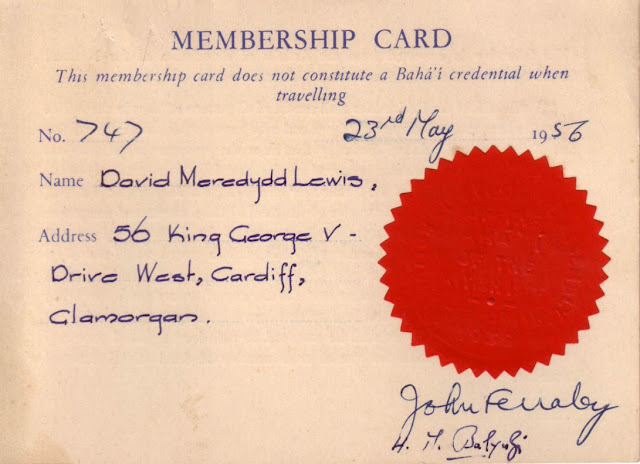 MEMBERSHIP CARD
This membership card does not constitute a Bahá'í credential when
travelling
No. 747 23rd May 1956
Name David Meredydd Lewis,
Address 56 King George V -
Drive West, Cardiff,
Glamorgan.
John Ferraby
H. M. Balyuzi